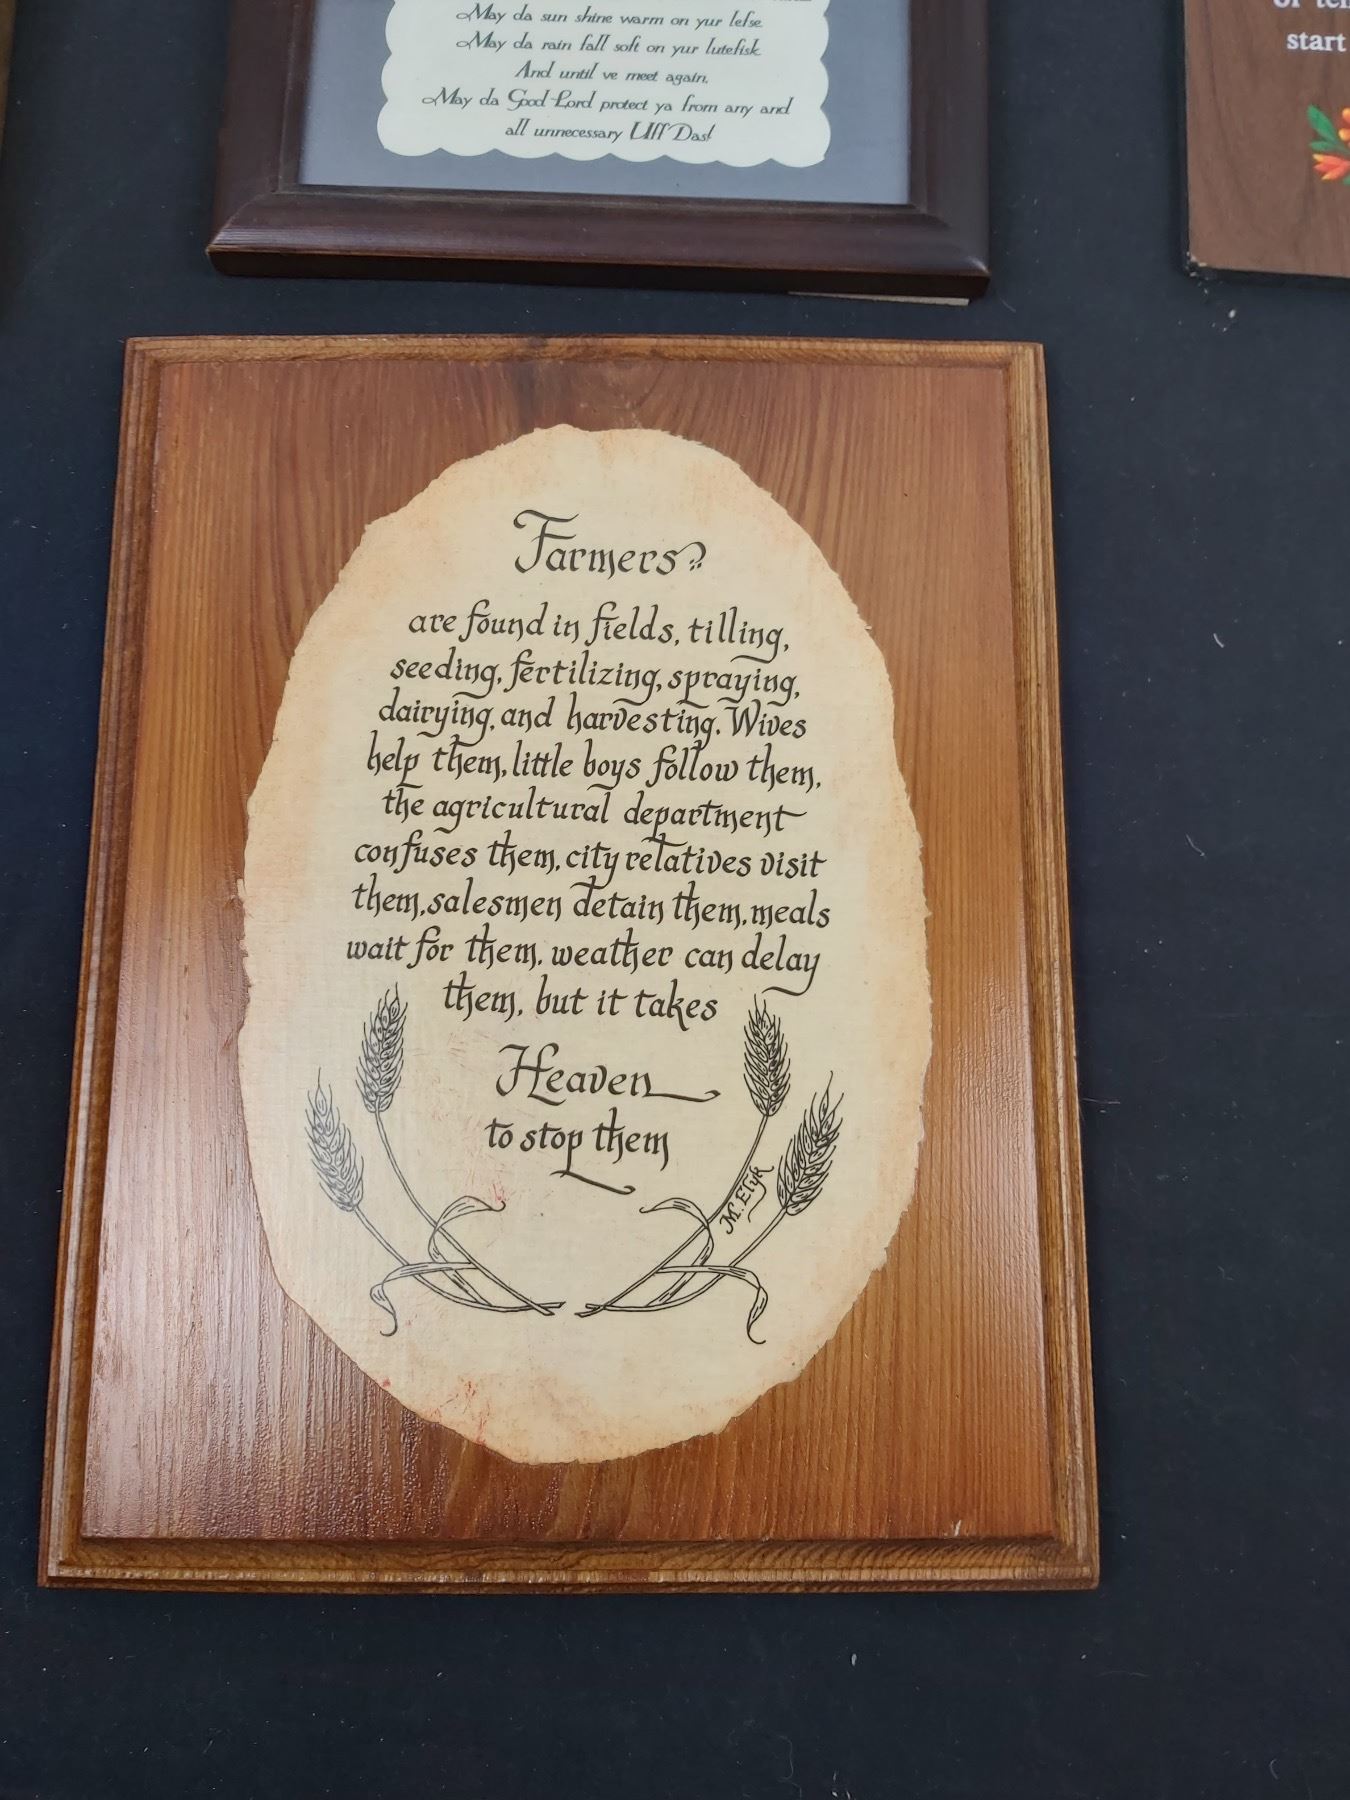 May da sun shine warm on yur lefse
May da rain fall soft on yur lutefisk
And until ve meet again,
May da Good Lord protect ya from any and
all unnecessary Uff Das!
start
Farmers?
are found in fields, tilling,
seeding, fertilizing, spraying,
dairying, and harvesting. Wives
help them, little boys follow them,
the agricultural department
confuses them, city relatives visit
them, salesmen detain them, meals
wait for them, weather can delay
them, but it takes
Heaven
to stop them